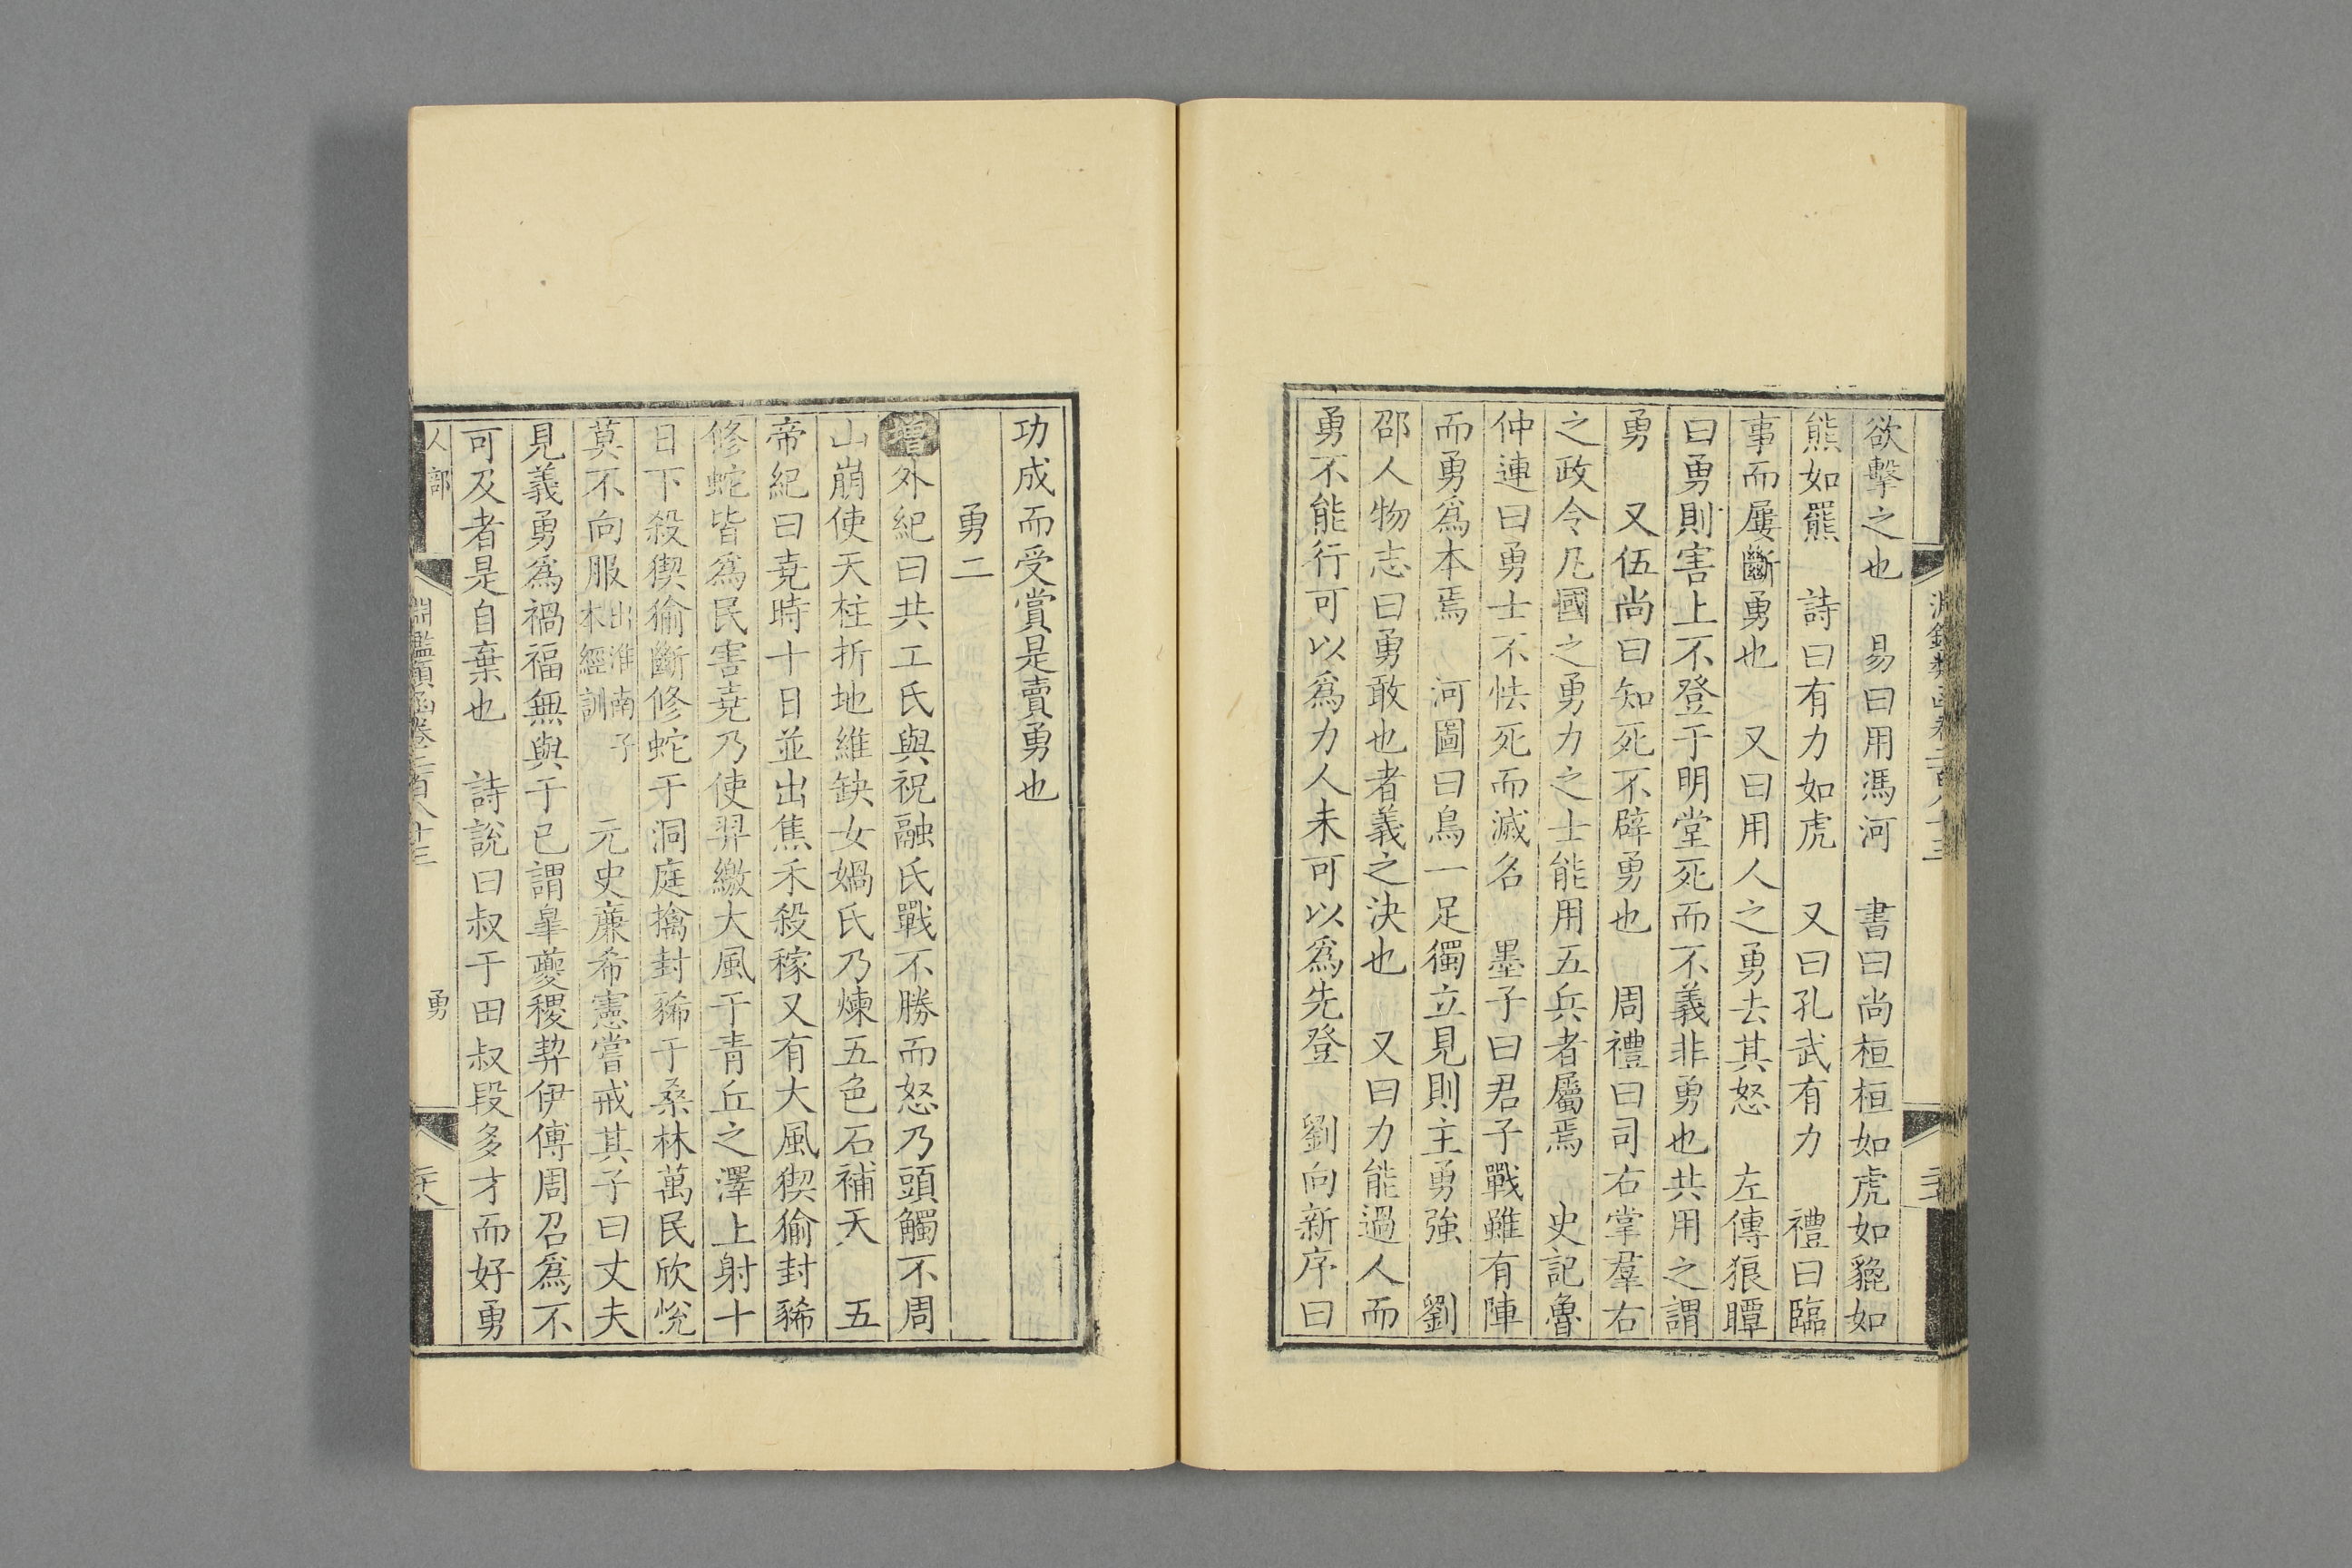 欲擊之也　易曰用馮河　書曰尚桓桓如虎如貔如
熊如羆　詩曰有力如虎　又曰孔武有力　禮曰臨
事而屢斷勇也　又曰用人之勇去其怒　左傳狼瞫
曰勇則害上不登于明堂死而不義非勇也共用之謂
勇　又伍尚曰知死不辟勇也　周禮曰司右掌羣右
之政令凡國之勇力之士能用五兵者屬焉　史記魯
仲連曰勇士不怯死而滅名　墨子曰君子戰雖有陣
而勇爲本焉　河圖曰鳥一足獨立見則主勇強　劉
邵人物志曰勇敢也者義之決也　又曰力能過人而
勇不能行可以爲力人未可以爲先登　劉向新序曰
功成而受賞是賣勇也
勇二
增外紀曰共工氏與祝融氏戰不勝而怒乃頭觸不周
山崩使天柱折地維缺女媧氏乃煉五色石補天　五
帝紀曰堯時十日並出焦禾殺稼又有大風猰貐封豨
修蛇皆爲民害堯乃使羿繳大風于青丘之澤上射十
日下殺猰貐斷修蛇于洞庭擒封豨于桑林萬民欣悅
莫不向服出淮南子本經訓　元史廉希憲嘗戒其子曰丈夫
見義勇爲禍福無與于已謂臯夔稷契伊傅周召爲不
可及者是自棄也　詩說曰叔于田叔段多才而好勇
人部
淵鑑類函卷二百八十三
勇